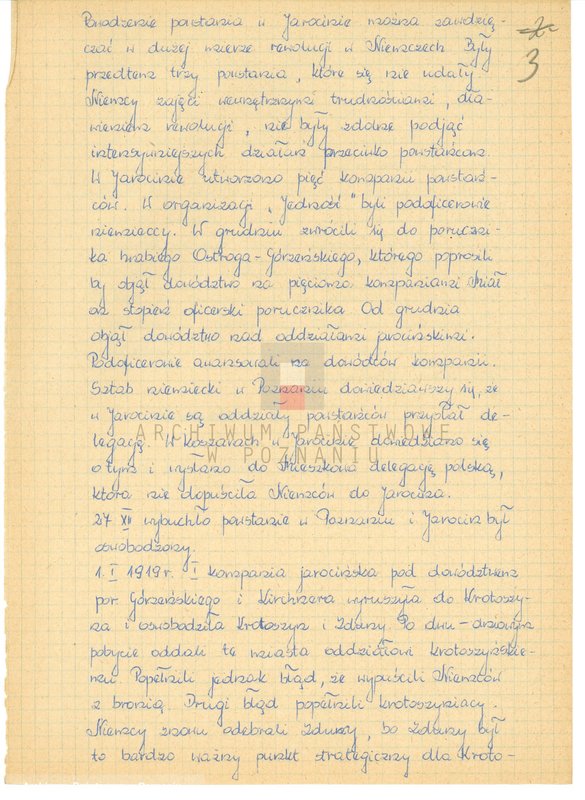 2.
3
Powodzenie powstania w Jarocinie można zawdzię-
czać w dużej mierze rewolucji w Niemczech Były
przedtem trzy powstania, które się nie udały
Niemcy zajęci wewnętrznymi trudnościami, dła-
wieniem rewolucji, nie były zdolne podjąć
intensywniejszych działań przeciwko powstańcom.
W Jarocinie utworzono pięć kompanii powstań-
ców. W organizacji „Jedność" byli podoficerowie
niemieccy. W grudniu zwrócili się do poruczni-
ka hrabiego Ostroga-Górzeńskiego, którego poprosili
by objął dowództwo za pięcioma kompaniami Miał
on stopień oficerski porucznika Od grudnia
objął dowództwo nad oddziałami jarocińskimi.
Podoficerowie awansowali na dowódców kompanii.
Sztab niemiecki w Poznaniu dowiedziawszy się, że
w Jarocinie są oddziały powstańców przysłał de-
legację. W koszarach w Jarocinie dowiedziano się
o tym i wysłano do Mieszkowa delegację polską,
która nie dopuściła Niemców do Jarocina.
27 XII wybuchło powstanie w Poznaniu i Jarocin był
oswobodzony.
1. I 1919 r. I kompania jarocińska pod dowództwem
por. Górzeńskiego i Kirchnera wyruszyła do Krotoszy-
na i oswobodziła Krotoszyn i Zduny. Po dwu-dniowym
pobycie oddali te miasta oddziałowi krotoszyńskie-
mu Popełnili jednak błąd, że wypuścili Niemców
z bronią. Drugi błąd popełnili krotoszyniacy.
Niemcy znowu odebrali Zduny, bo Zduny był
to bardzo ważny punkt strategiczny dla Kroto-
ARCHIWUM PAŃSTWOWE
W POZNANIU